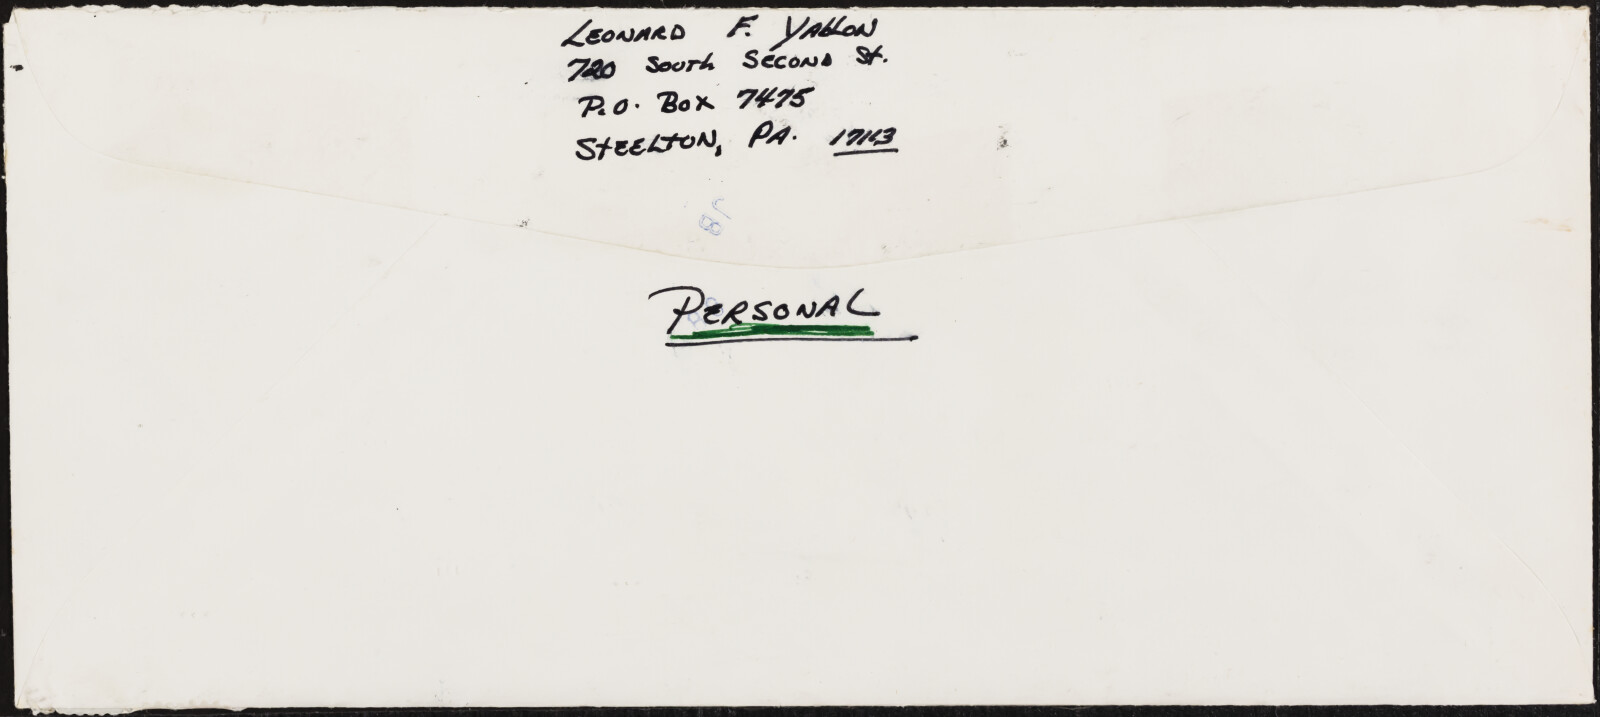 LEONARD F. YABLON
720 South Second St.
P.O. Box 7475
STEELTON, PA. 17113
JB
PERSONAL